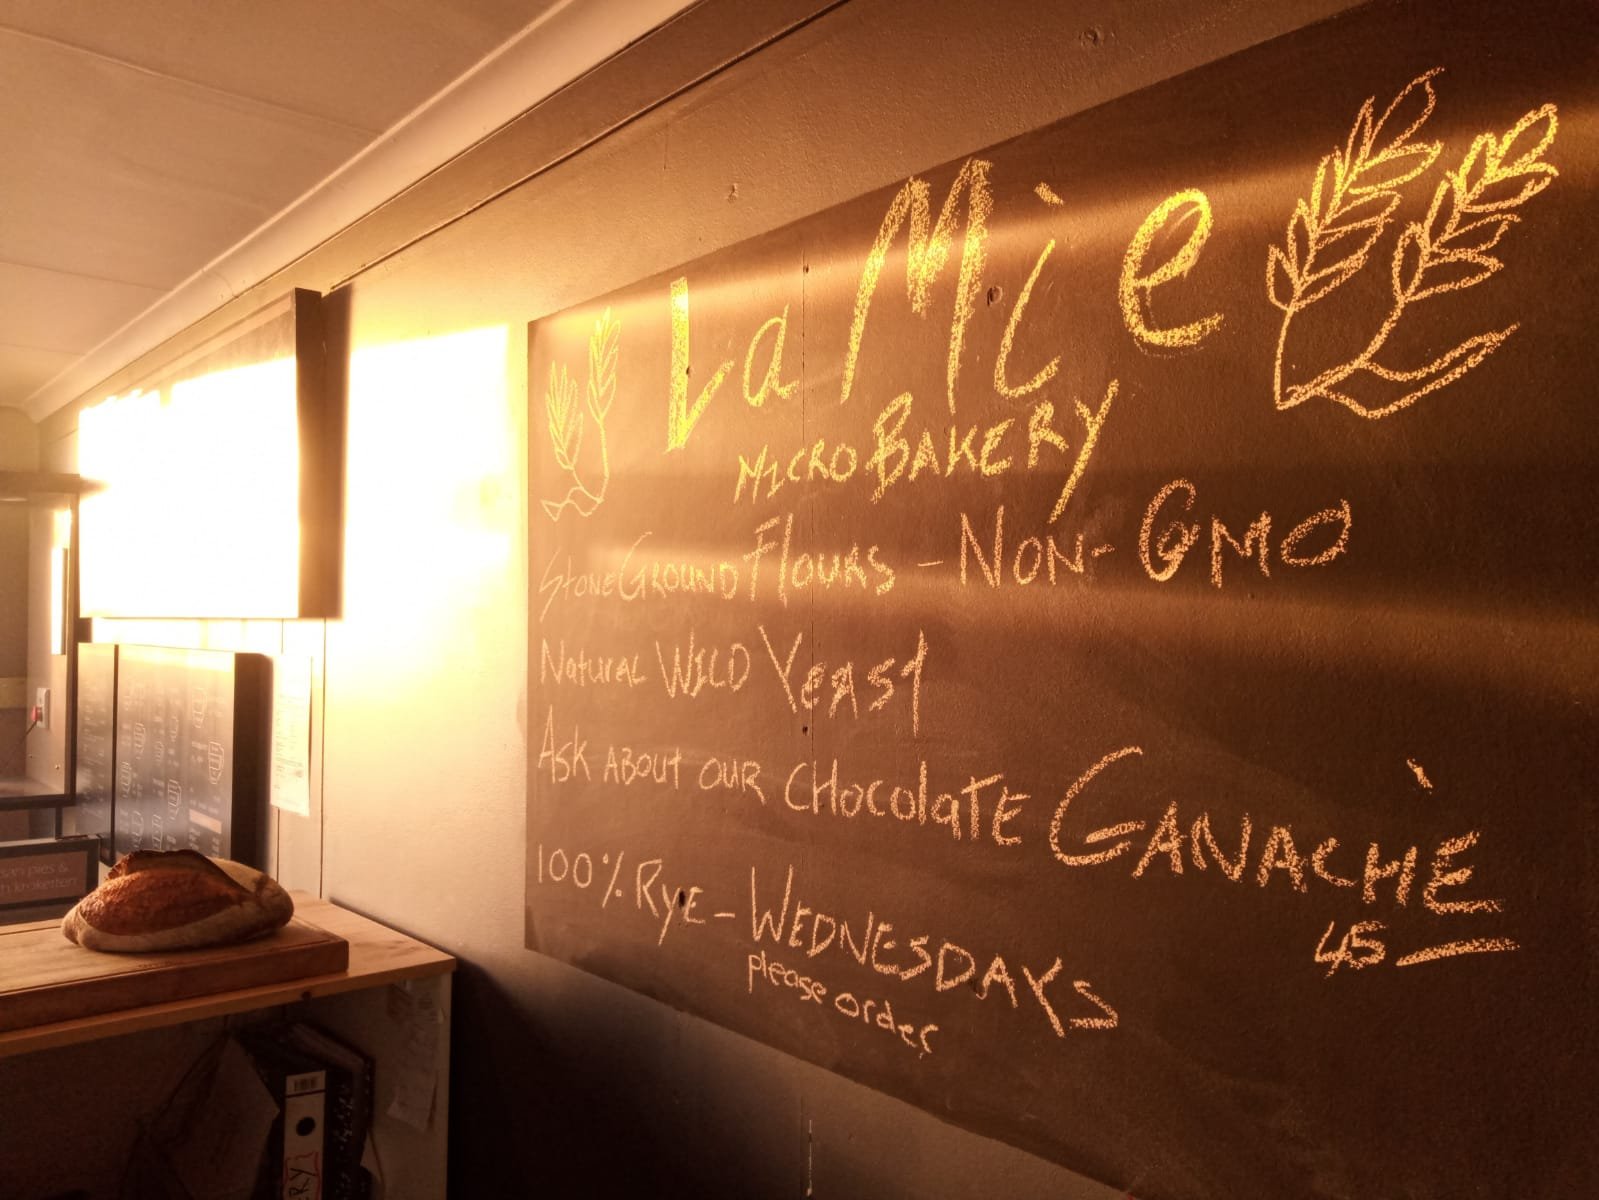 La Mie
MICRO BAKERY
STONEGROUND FLOURS - NON-GMO
Natural WILD YEAST
ASK ABOUT OUR CHOCOLATE GANACHÈ
45
100% RYE - WEDNESDAYS
please order
san pies &
h kroketten